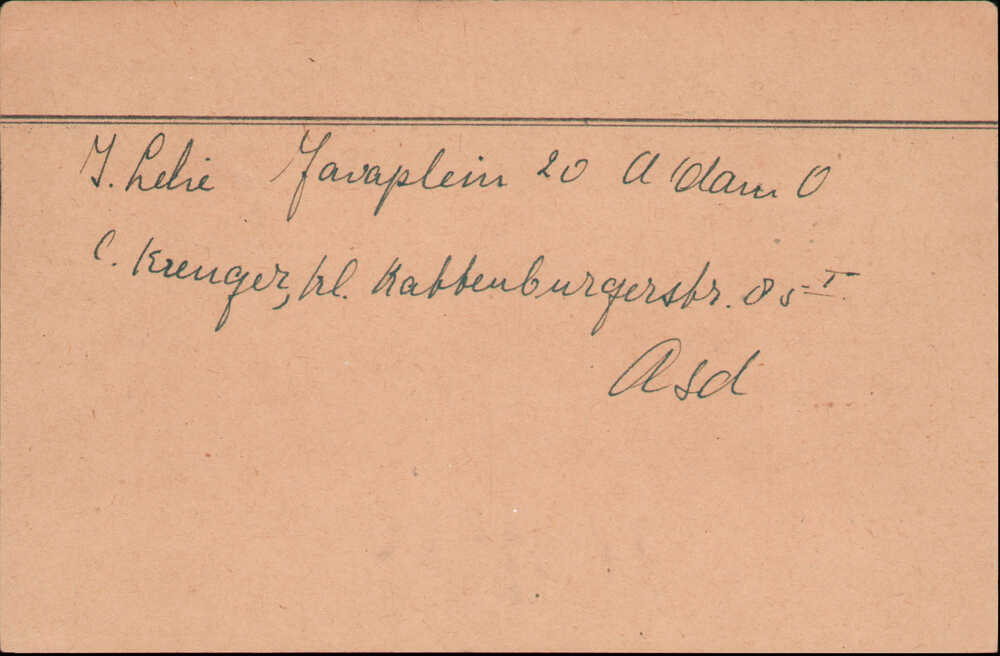 J. Lelie Javaplein 20 A'dam O
C. Krenger, Kl. Kattenburgerstr. 85 I
Asd